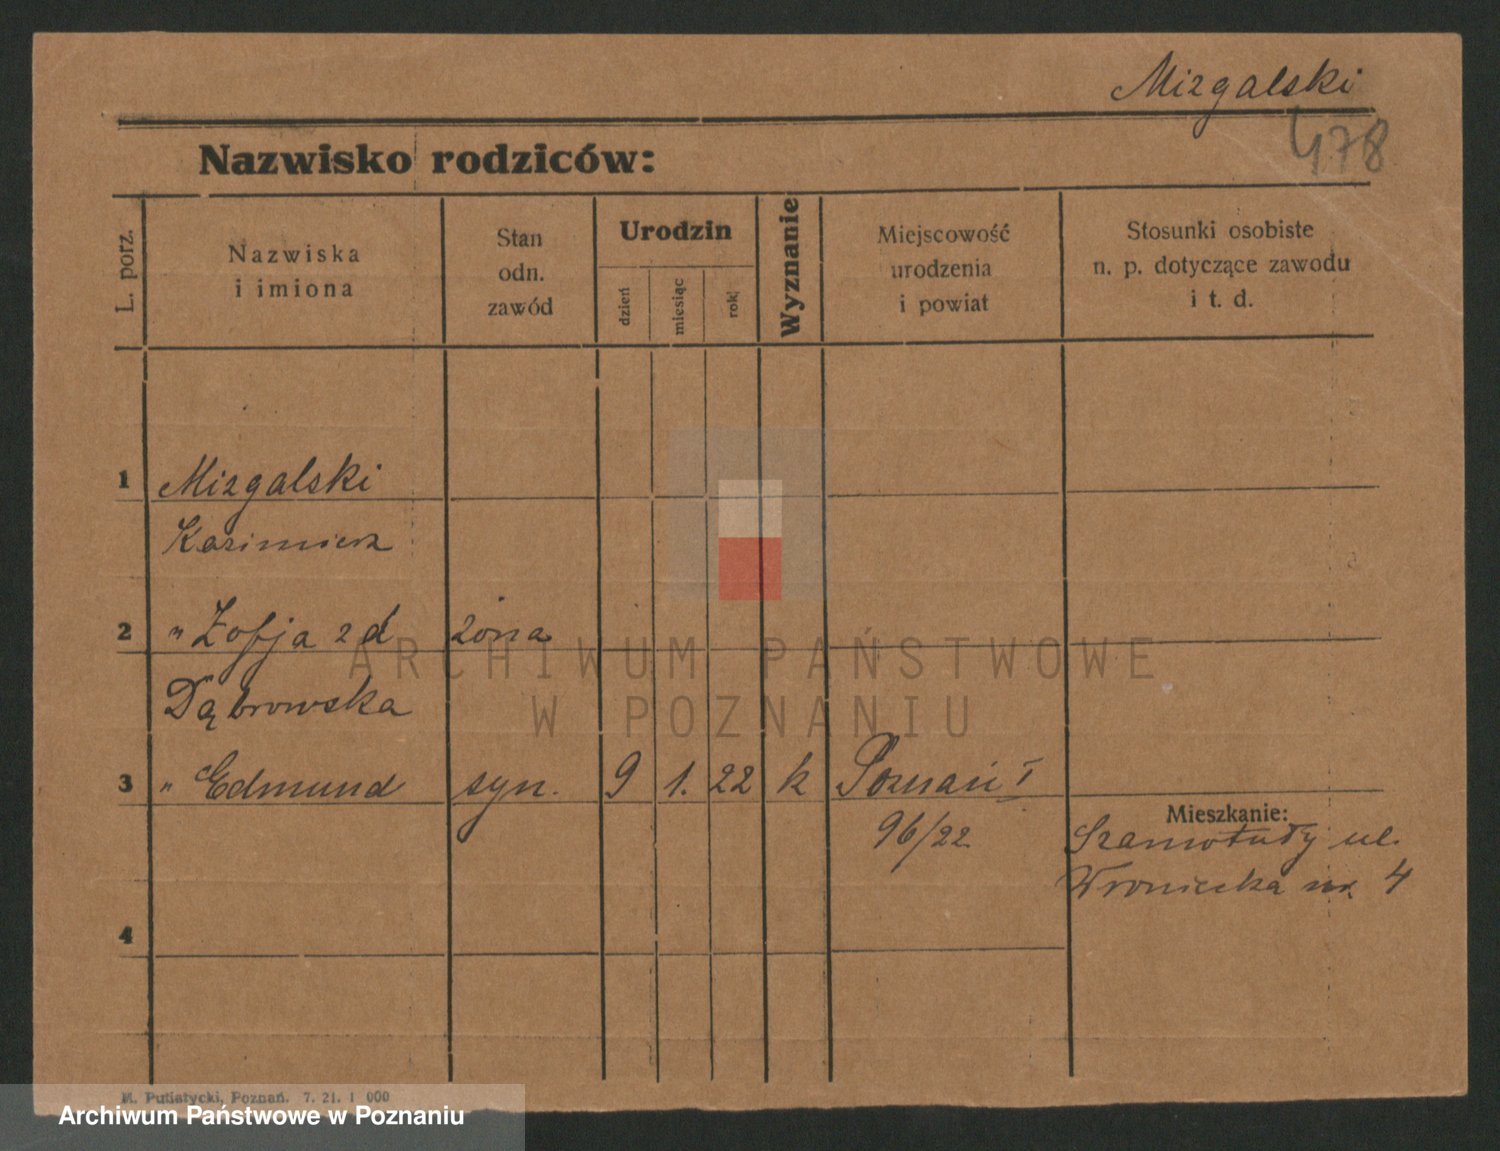 Mizgalski
478
Nazwisko rodziców:
L. porz.
Nazwiska
i imiona
Stan
odn.
zawód
Urodzin
dzień
miesiąc
rok
Wyznanie
Miejscowość
urodzenia
i powiat
Stosunki osobiste
n. p. dotyczące zawodu
i t. d.
1 Mizgalski
Kazimierz
2 " Zofja zd żona
Dąbrowska
3 " Edmund syn. 9 1. 22 k Poznań I
96/22
Mieszkanie:
Szamotuły ul.
Wroniecka nr 4
4
M. Putiatycki, Poznań. 7. 21. 1 000
ARCHIWUM PAŃSTWOWE
W POZNANIU
Archiwum Państwowe w Poznaniu